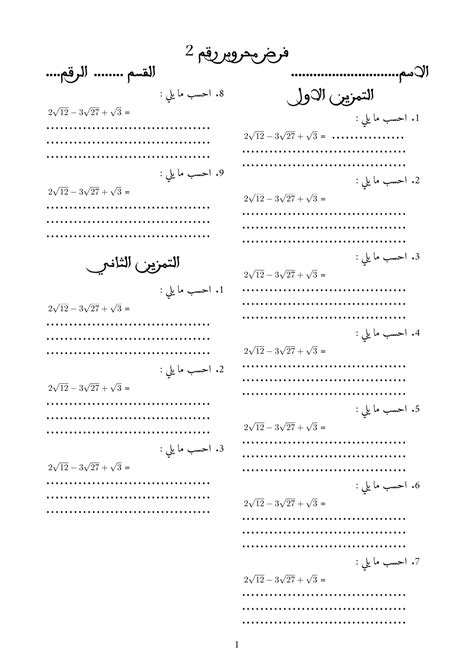 فرض محروس رقم 2
الاسم............................. القسم ........ الرقم....
التمرين الاول
1. احسب ما يلي :
2√12 − 3√27 + √3 = ................
....................................
....................................
2. احسب ما يلي :
2√12 − 3√27 + √3 =
....................................
....................................
....................................
3. احسب ما يلي :
2√12 − 3√27 + √3 =
....................................
....................................
....................................
4. احسب ما يلي :
2√12 − 3√27 + √3 =
....................................
....................................
....................................
5. احسب ما يلي :
2√12 − 3√27 + √3 =
....................................
....................................
....................................
6. احسب ما يلي :
2√12 − 3√27 + √3 =
....................................
....................................
....................................
7. احسب ما يلي :
2√12 − 3√27 + √3 =
....................................
....................................
....................................
8. احسب ما يلي :
2√12 − 3√27 + √3 =
....................................
....................................
....................................
9. احسب ما يلي :
2√12 − 3√27 + √3 =
....................................
....................................
....................................
التمرين الثاني
1. احسب ما يلي :
2√12 − 3√27 + √3 =
....................................
....................................
....................................
2. احسب ما يلي :
2√12 − 3√27 + √3 =
....................................
....................................
....................................
3. احسب ما يلي :
2√12 − 3√27 + √3 =
....................................
....................................
....................................
1